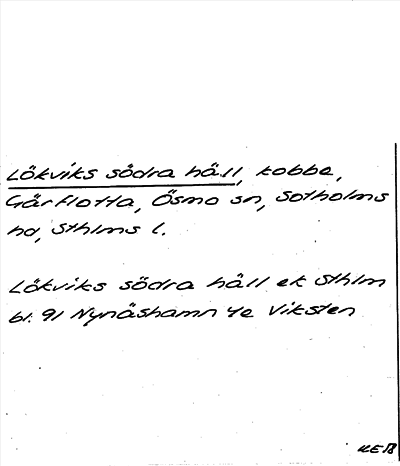 Lökviks södra häll, kobbe,
Gårflotta, Ösmo sn, Sotholms
hd, Sthlms l.
Lökviks södra häll ek Sthlm
bl. 91 Nynäshamn 4e Viksten
KEB